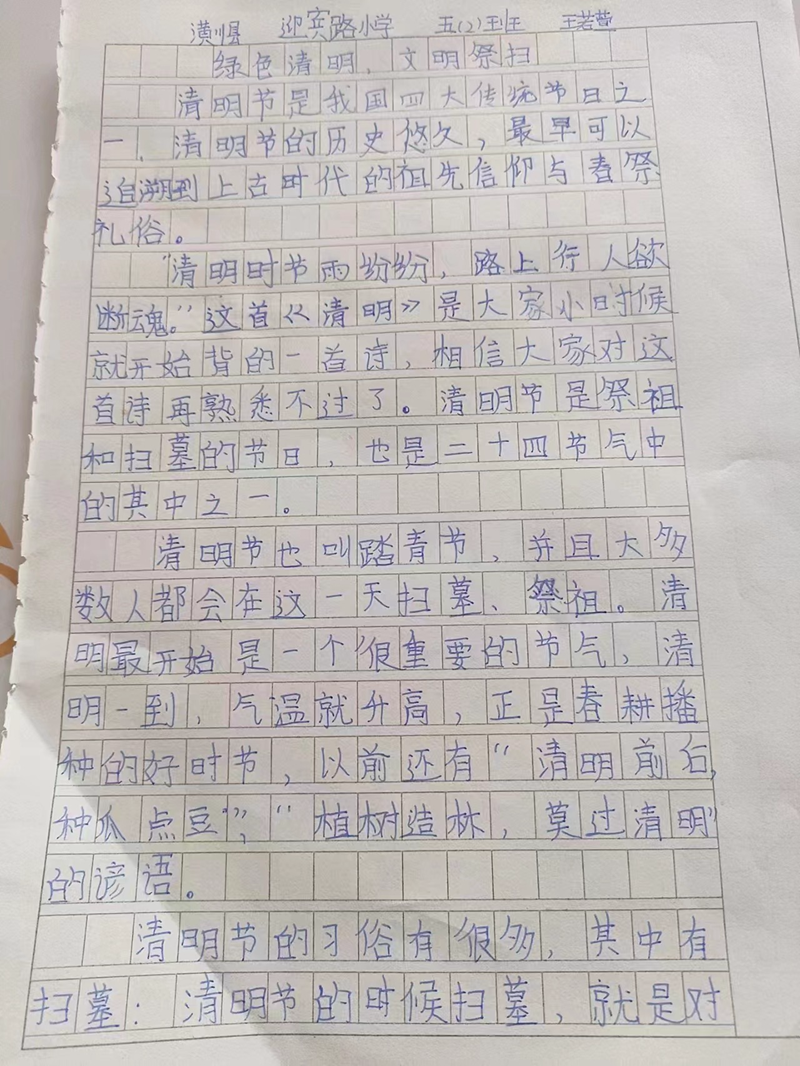 潢川县 迎宾路小学 五(2)班 王若萱
绿色清明、文明祭扫
清明节是我国四大传统节日之
一、清明节的历史悠久，最早可以
追溯到上古时代的祖先信仰与春祭
礼俗。
"清明时节雨纷纷，路上行人欲
断魂。"这首《清明》是大家小时候
就开始背的一首诗，相信大家对这
首诗再熟悉不过了。清明节是祭祖
和扫墓的节日，也是二十四节气中
的其中之一。
清明节也叫踏青节，并且大多
数人都会在这一天扫墓、祭祖。清
明最开始是一个很重要的节气，清
明一到，气温就升高，正是春耕播
种的好时节，以前还有"清明前后，
种瓜点豆"，"植树造林，莫过清明"
的谚语。
清明节的习俗有很多，其中有
扫墓：清明节的时候扫墓，就是对